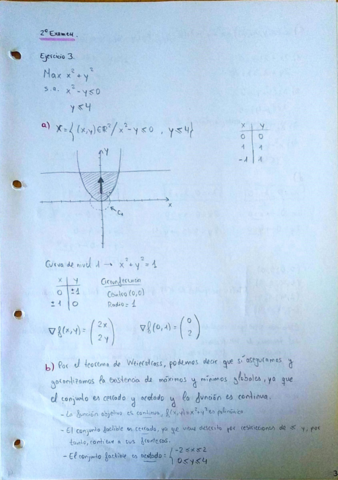 2º Examen
Ejercicio 3
Max x² + y²
s.a. x² - y ≤ 0
y ≤ 4
a) X = {(x,y) ∈ ℝ² / x² - y ≤ 0 , y ≤ 4}
x y
0 0
1 1
-1 1
y
x
C₁
Curva de nivel 1 → x² + y² = 1
x y Circunferencia
0 ±1 Centro (0,0)
±1 0 Radio = 1
∇f(x,y) = (2x 2y) ∇f(0,1) = (0 2)
b) Por el teorema de Weierstrass, podemos decir que sí aseguramos y
garantizamos la existencia de máximos y mínimos globales, ya que
el conjunto es cerrado y acotado y la función es continua.
- La función objetivo es continua, f(x,y) = x² + y² es polinómica
- El conjunto factible es cerrado, ya que viene descrito por restricciones de ≤ y, por
tanto, contiene a sus fronteras.
- El conjunto factible es acotado: { -2 ≤ x ≤ 2
0 ≤ y ≤ 4
3